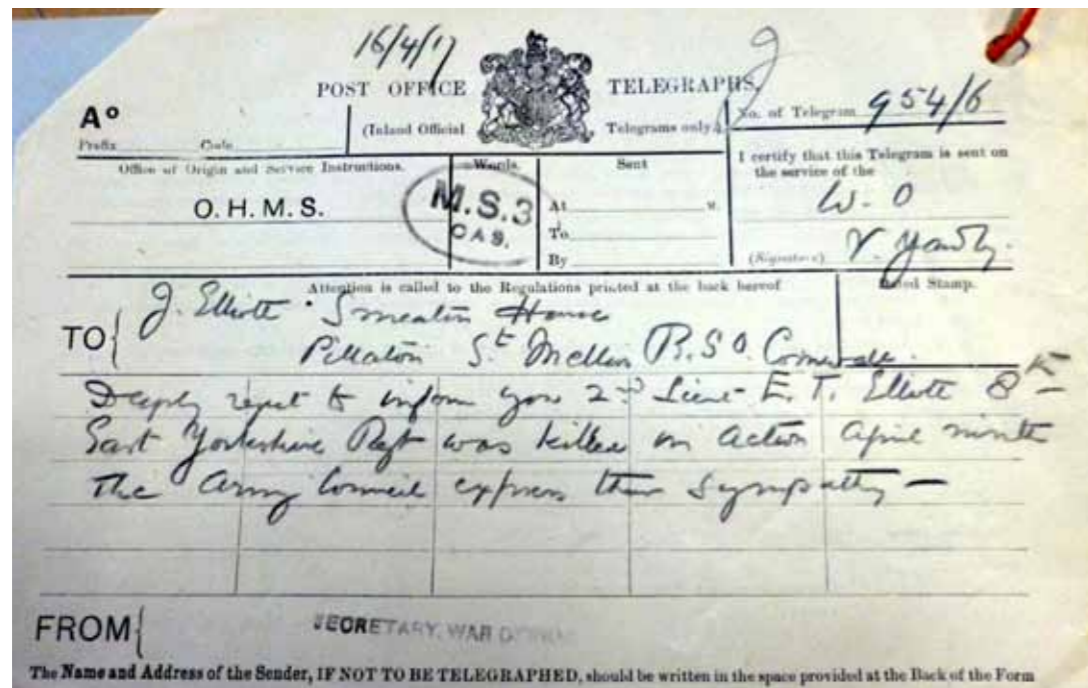 16/4/17
POST OFFICE TELEGRAPHS,
(Inland Official Telegrams only.)
No. of Telegram 954/6
A°
Prefix Code
Office of Origin and Service Instructions.
O. H. M. S.
Words.
M.S.3
CAS.
Sent
At M.
To
By
I certify that this Telegram is sent on
the service of the
W. O
(Signature)
Attention is called to the Regulations printed at the back hereof
Dated Stamp.
TO { J. Elliott Smeaton House
Pillaton St Mellion R.S.O. Cornwall.
Deeply regret to inform you 2nd Lieut E. T. Elliott 8th
East Yorkshire Regt was killed in action April ninth
The Army Council express their sympathy —
FROM { SECRETARY, WAR OFFICE
The Name and Address of the Sender, IF NOT TO BE TELEGRAPHED, should be written in the space provided at the Back of the Form